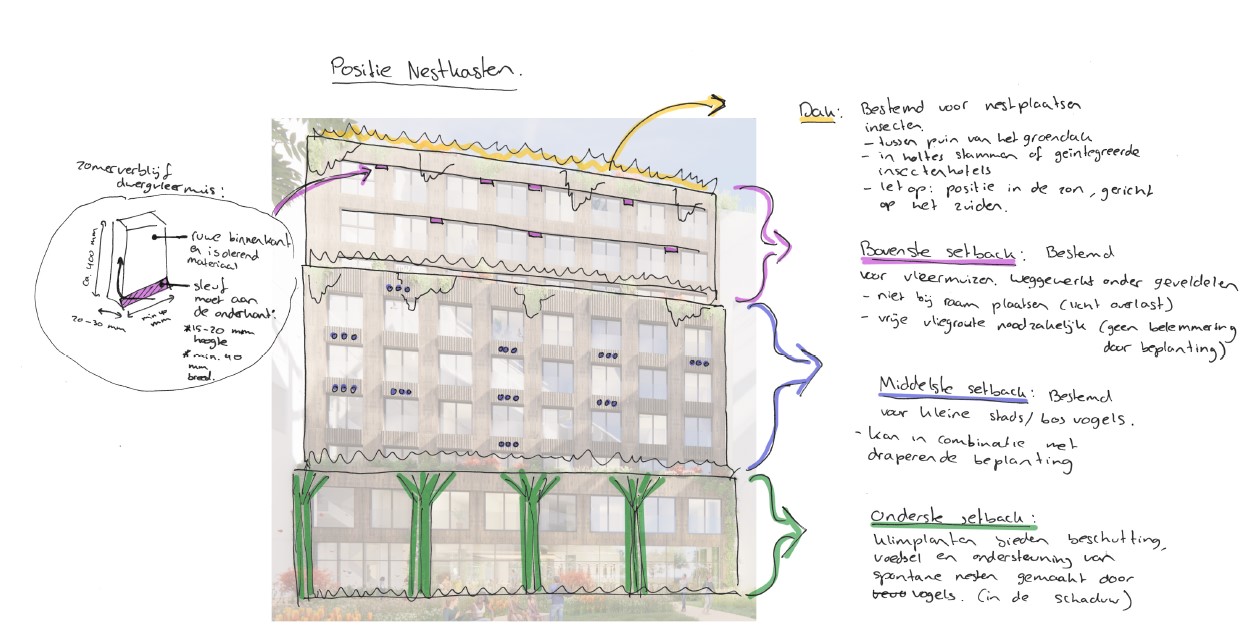 Positie Nestkasten.
zomerverblijf
dwergvleermuis:
ca. 400 mm
20-30 mm
min 40
mm
ruwe binnenkant
en isolerend
materiaal
sleuf
moet aan
de onderkant.
* 15-20 mm
hoogte
* min. 40
mm
breed.
Dak: Bestemd voor nestplaatsen
insecten.
- tussen puin van het groendak
- in holtes stammen of geïntegreerde
insectenhotels
- let op: positie in de zon, gericht
op het zuiden.
Bovenste setback: Bestemd
voor vleermuizen. Weggewerkt onder geveldelen
- niet bij raam plaatsen (licht overlast)
- vrije vliegroute noodzakelijk (geen belemmering
door beplanting)
Middelste setback: Bestemd
voor kleine stads/bos vogels.
- kan in combinatie met
draperende beplanting
Onderste setback:
klimplanten bieden beschutting,
voedsel en ondersteuning van
spontane nesten gemaakt door
vogels. (in de schaduw)